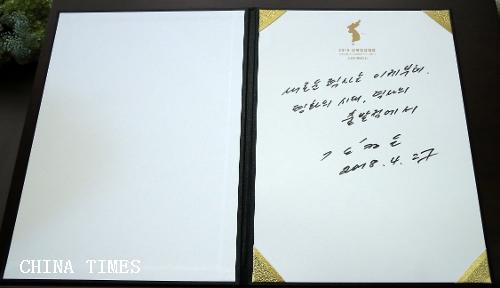 2018 남북정상회담
새로운 력사는 이제부터.
평화의 시대, 력사의
출발점에서
김정은
2018. 4. 27
CHINA TIMES